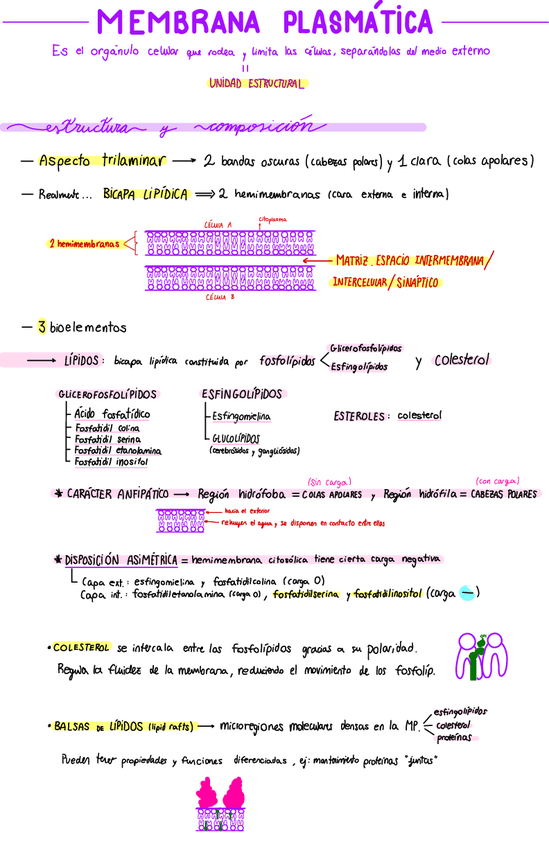 MEMBRANA PLASMÁTICA
Es el orgánulo celular que rodea y limita las células, separándolas del medio externo
UNIDAD ESTRUCTURAL
estructura y composición
— Aspecto trilaminar → 2 bandas oscuras (cabezas polares) y 1 clara (colas apolares)
— Realmente... BICAPA LIPÍDICA ⇒ 2 hemimembranas (cara externa e interna)
CÉLULA A
citoplasma
2 hemimembranas
MATRIZ. ESPACIO INTERMEMBRANA/
INTERCELULAR/SINÁPTICO
CÉLULA B
— 3 bioelementos
→ LÍPIDOS: bicapa lipídica constituida por fosfolípidos < Glicerofosfolípidos
Esfingolípidos y colesterol
GLICEROFOSFOLÍPIDOS
Ácido fosfatídico
Fosfatidil colina
Fosfatidil serina
Fosfatidil etanolamina
Fosfatidil inositol
ESFINGOLÍPIDOS
Esfingomielina
GLUCOLÍPIDOS
(cerebrósidos y gangliósidos)
ESTEROLES: colesterol
* CARÁCTER ANFIPÁTICO → Región hidrófoba = COLAS APOLARES y Región hidrófila = CABEZAS POLARES
(sin carga)
(con carga)
hacia el exterior
rehuyen el agua y se disponen en contacto entre ellas
* DISPOSICIÓN ASIMÉTRICA = hemimembrana citosólica tiene cierta carga negativa
Capa ext.: esfingomielina y fosfatidilcolina (carga 0)
Capa int.: fosfatidiletanolamina (carga 0), fosfatidilserina y fosfatidilinositol (carga —)
• COLESTEROL se intercala entre los fosfolípidos gracias a su polaridad.
Regula la fluidez de la membrana, reduciendo el movimiento de los fosfolíp.
• BALSAS DE LÍPIDOS (lipid rafts) → microregiones moleculares densas en la MP. < esfingolípidos
colesterol
proteínas
Pueden tener propiedades y funciones diferenciadas, ej: mantenimiento proteínas "juntas"